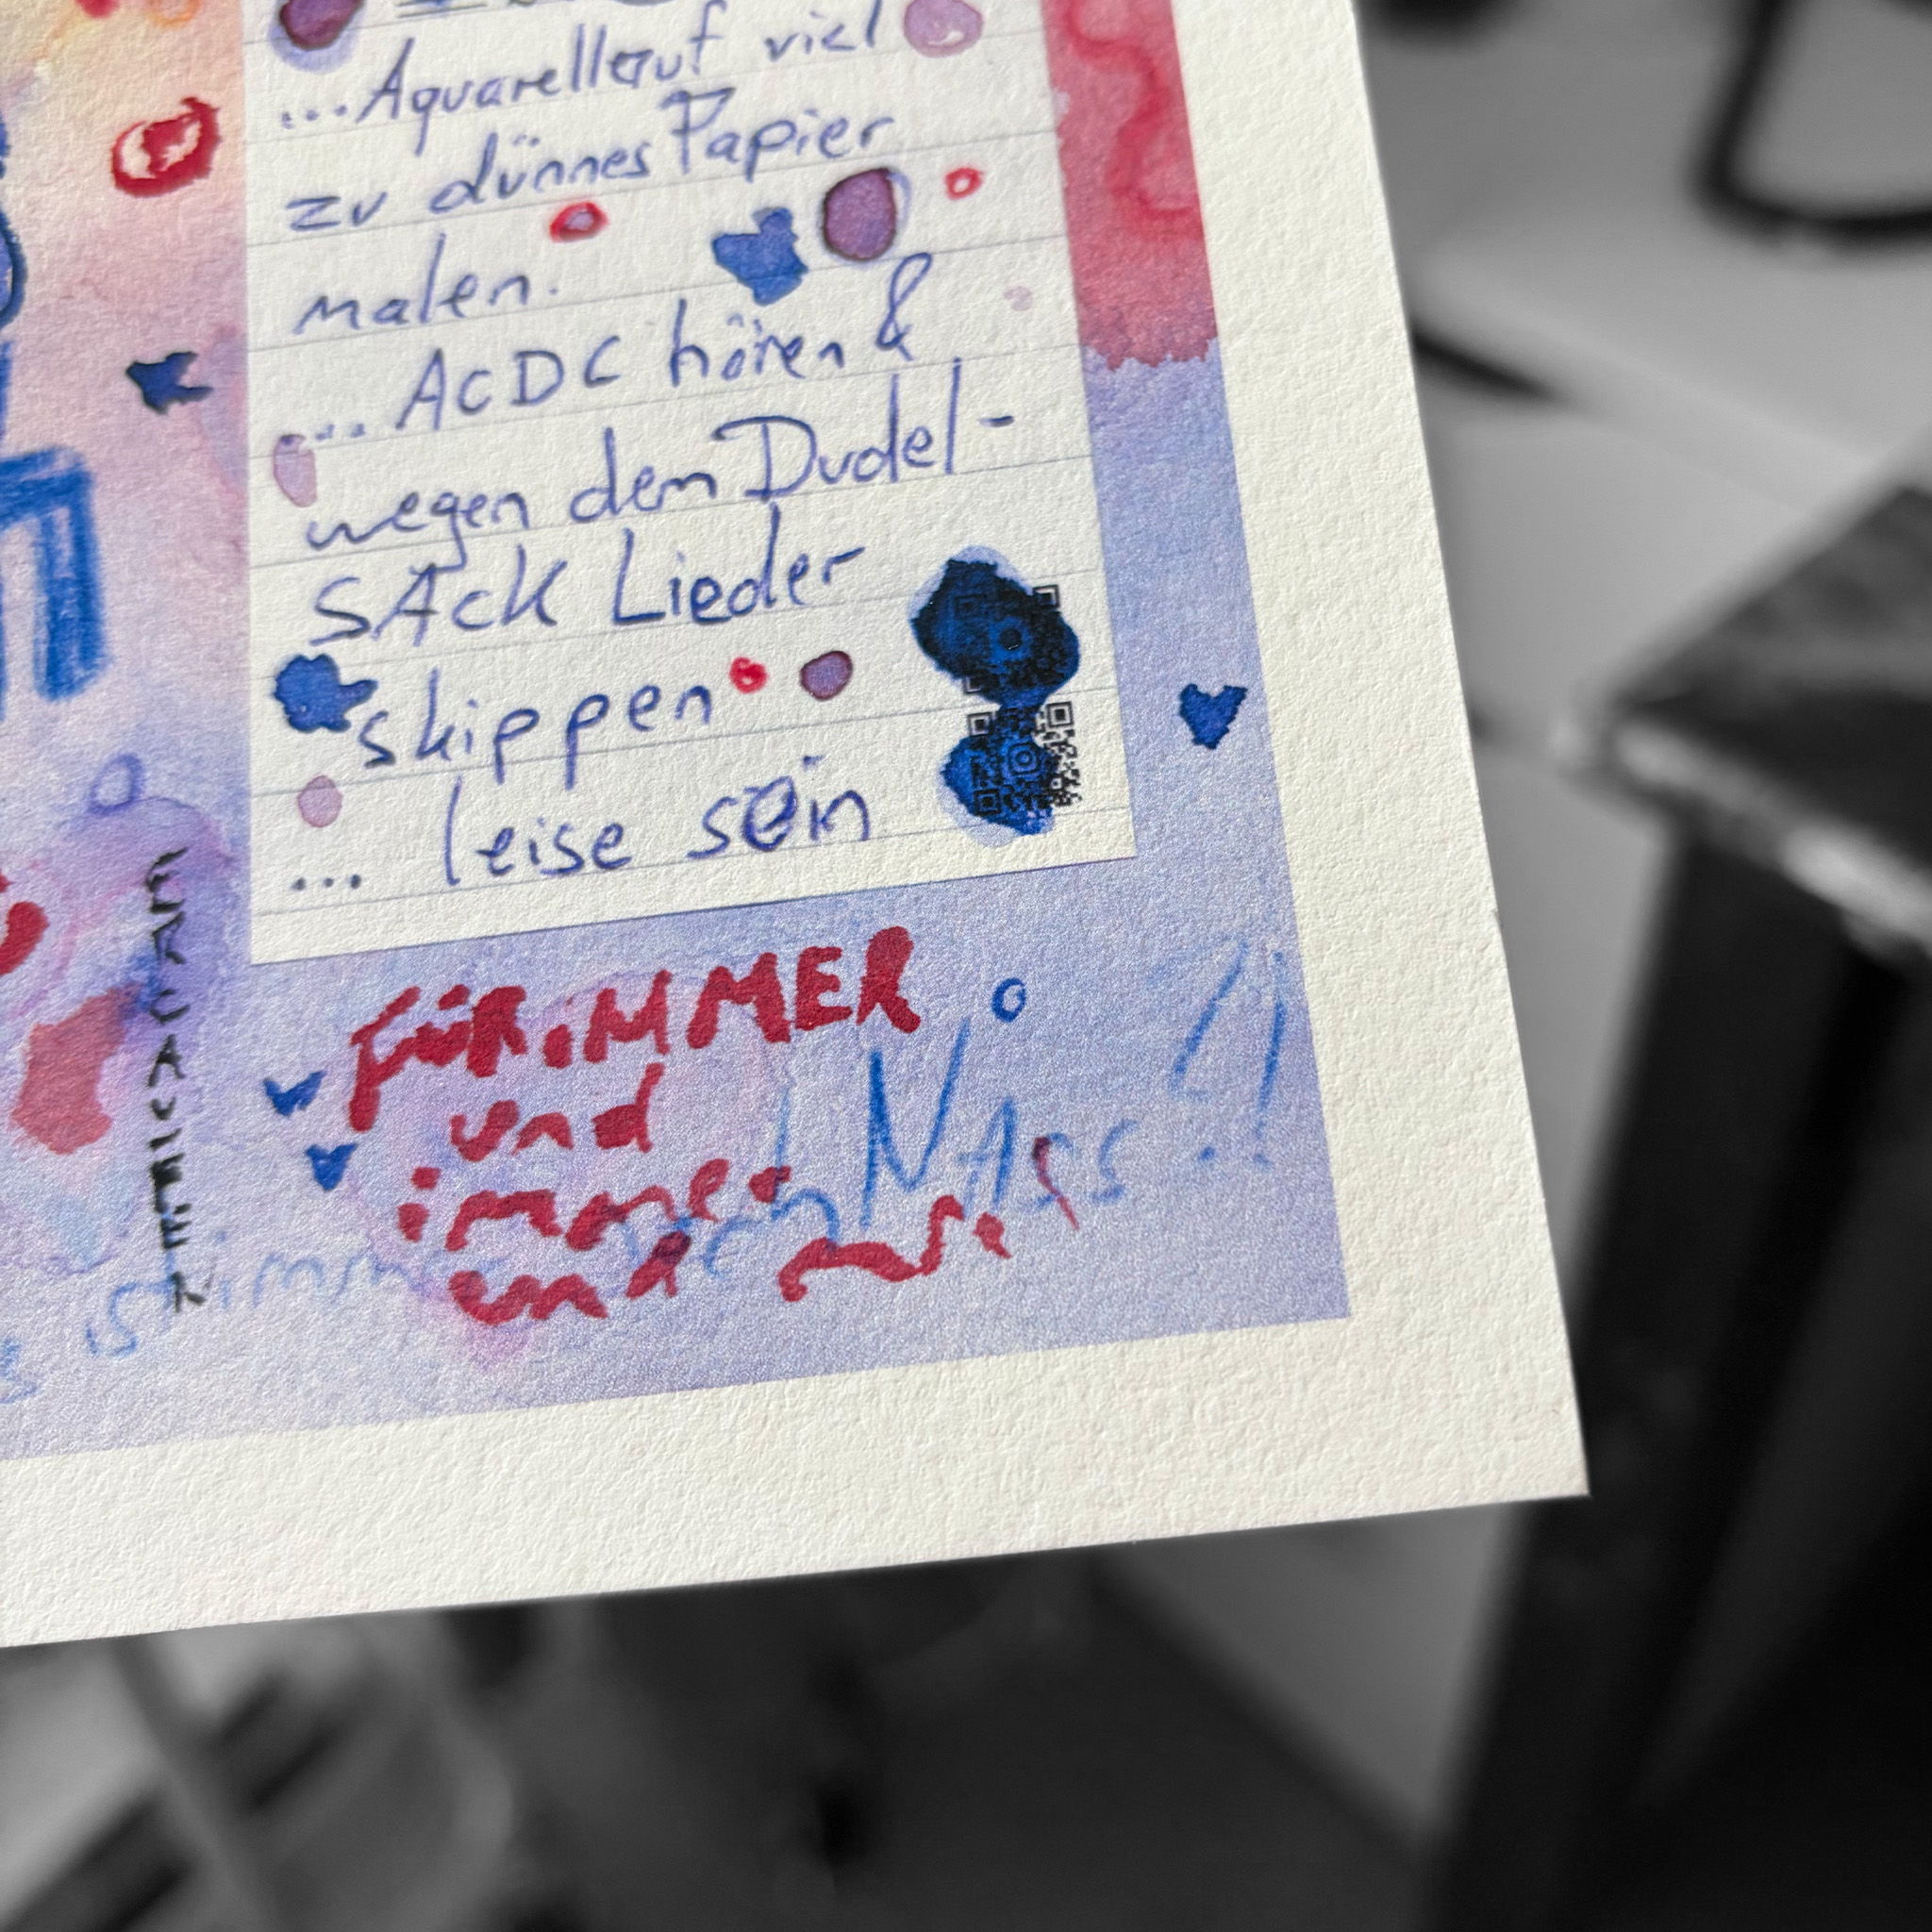 ...Aquarell auf viel
zu dünnes Papier
malen.
... ACDC hören &
wegen dem Dudel-
SAcK Lieder
skippen
... leise sein
FÜR iMMER
und
immer
und
ist immer noch NAss !!